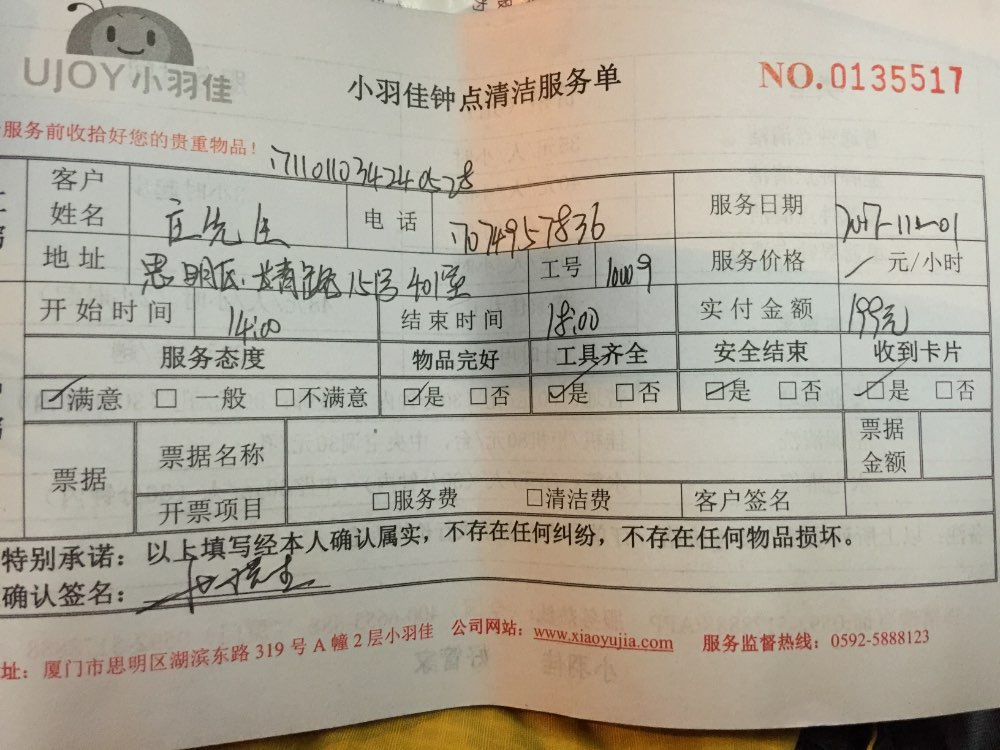 UJOY小羽佳
小羽佳钟点清洁服务单
NO.0135517
服务前收拾好您的贵重物品！
客户姓名 庄先生 电话 服务日期
地址 思明区 15号401室 工号 10009 服务价格 元/小时
开始时间 14:00 结束时间 18:00 实付金额 199元
服务态度 物品完好 工具齐全 安全结束 收到卡片
☑满意 □一般 □不满意 ☑是 □否 ☑是 □否 ☑是 □否 ☑是 □否
票据 票据名称 票据金额
开票项目 □服务费 □清洁费 客户签名
特别承诺：以上填写经本人确认属实，不存在任何纠纷，不存在任何物品损坏。
确认签名：
址：厦门市思明区湖滨东路319号A幢2层小羽佳 公司网站：www.xiaoyujia.com 服务监督热线：0592-5888123